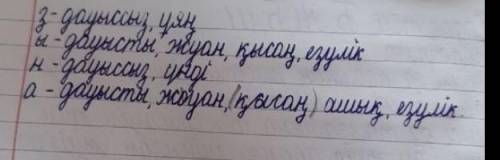 з - дауыссыз, ұяң
ы - дауысты, жуан, қысаң, езулік
н - дауыссыз, үнді
а - дауысты, жуан, (қысаң) ашық, езулік.